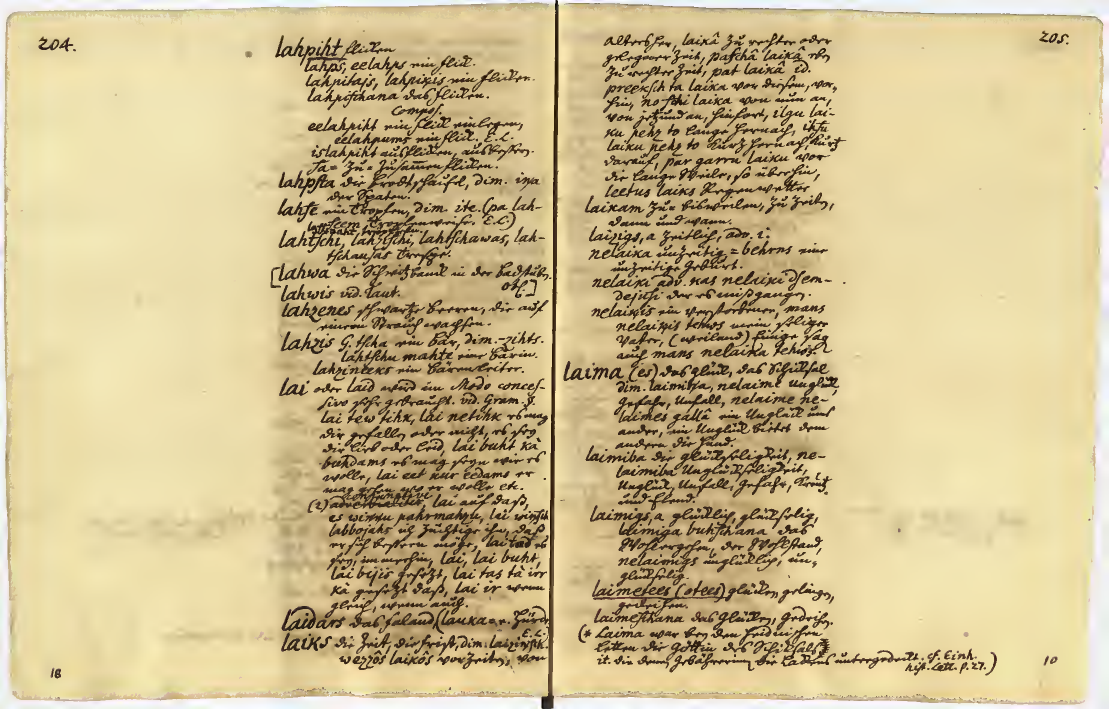 204.
lahpiht flicken
lahps, eelahps ein flick.
lahpitajs, lahpixis ein flicken.
lahpischana das flicken.
Compos.
eelahpiht ein flick einlegen,
eelahpums ein flick. E.L.
islahpiht ausflicken, ausbeßern.
Sa= zu= zusammen flicken.
lahpsta die brodtschaufel, dim. ina
der Spaten.
lahse ein Tropfen, dim. ite. (pa lah-
E.L.)
lahtschi, lahztschi, lahtschawas, lah-
tschausas
[lahwa die Schwitzbanck in der badstuben.
lahwis vid. laut.
lahzenes schwartze beeren, die auf
einem Strauch wachsen.
lahzis G. tscha ein bär, dim. -zihts.
lahtschu mahte eine bärin.
lahzineeks ein bärenleiter.
lai oder laid wird im Modo conces-
sivo sehr gebraucht. vid. Gram. §.
lai tew tihk, lai netihk es mag
dir gefallen oder nicht, es sey
dir lieb oder leid, lai buht kà
buhdams es mag seyn wie es
wolle, lai eet kur eedams er
mag gehen wo er wolle etc.
(2) lai auf daß,
es wiņņu pahrmahzu, lai wiņsch
labbojahs ich züchtige ihn daß
er sich beßern möge, lai tad es
sey, immerhin, lai, lai buht,
lai bijis gesetzt, lai tas tà irr
kà gesetzt daß, lai ir wenn
gleich, wenn auch.
laidars das faland (lauka
E.L.
laiks die Zeit, die frist, dim. laizinsch.
wezzôs laikôs vorzeiten, von
18
205.
alters her, laikâ zu rechter oder
gelegener Zeit, paschâ laikâ eben
zu rechter Zeit, pat laikâ id.
preeksch ta laika vor diesem, vor-
hin, no schi laika von nun an,
von jetzund an, hinfort, ilgu lai-
ku pehz to lange hernach, ihsu
laiku pehz to kurz hernach, kurz
darauf, par garru laiku vor
die lange Weile, so überhin,
leetus laiks Regenwetter
laikam zu= bisweilen, zu Zeiten,
dann und wann.
laizigs, a zeitlich, adv. i.
nelaika unzeitig = behrns eine
unzeitige Geburt.
nelaiki adv. kas nelaiki dsem-
dejusi der es mißgangen.
nelaixis ein verstorbener, mans
nelaixis tehws mein seliger
Vater, (weiland) Einige sag.
auch mans nelaika tehws.
laima (es) das glück, das Schicksal
dim. laimiņa, nelaime Unglück,
gefahr, Unfall, nelaime ne-
laimes gallâ ein Unglück ums
andere, ein Unglück bietet dem
andern die hand.
laimiba die glückseligkeit, ne-
laimiba Unglückseligkeit,
Unglück, Unfall, gefahr, Kreutz
und Elend.
laimigs, a glücklich, glückselig,
laimiga buhschana das
Wohlergehen, der Wohlstand,
nelaimigs unglücklich, un-
glückselig.
laimetees (otees) glücken, gelingen,
gedeihen.
laimeschana das Glücken, Gedeihn.
(* Laima war bey den heidnischen
Letten die Göttin des Schicksals
it. die denen Gebährerin die Lackens untergedeckt. cf. Einh.
hist. Lett. p. 27.)
10